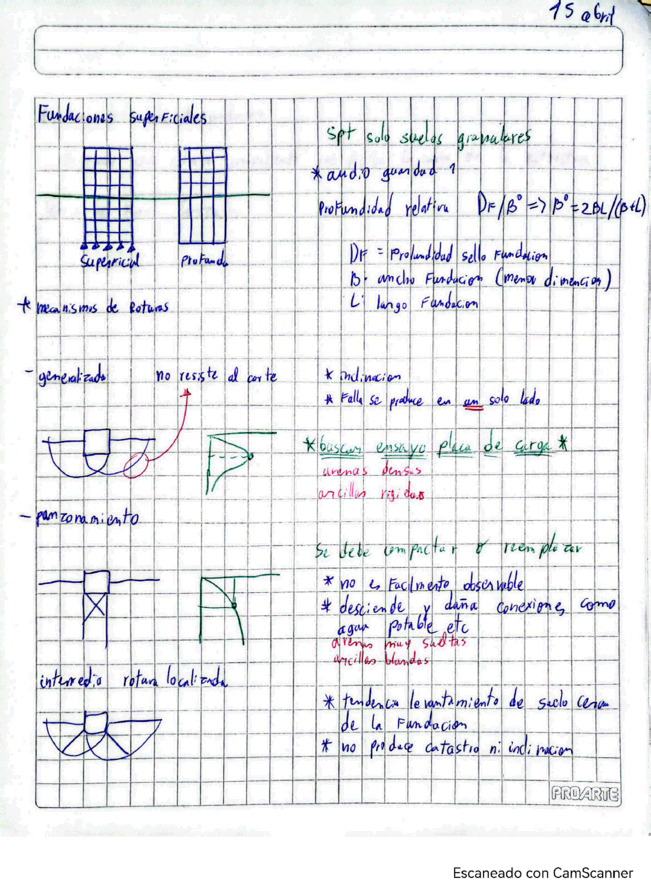 15 abril
Fundaciones superficiales
Spt solo suelos granulares
* audio guardad 1
Profundidad relativa DF/B° => B° = 2BL/(B+L)
Superficial Profunda
DF = Profundidad sello Fundacion
B: ancho Fundacion (menor dimencion)
L: largo Fundacion
* mecanismos de Roturas
- generalizado no resiste al corte
* inclinacion
* Falla se produce en un solo lado
* buscar ensayo placa de carga *
arenas densas
arcillas rigidas
- punzonamiento
Se debe compactar o reemplazar
* no es Facilmente observable
* desciende y daña conexiones como
agua potable etc
arenas muy sueltas
arcillas blandas
intermedio rotura localizada
* tendencia levantamiento de suelo cerca
de la Fundacion
* no produce catastro ni inclinacion
PROARTE
Escaneado con CamScanner